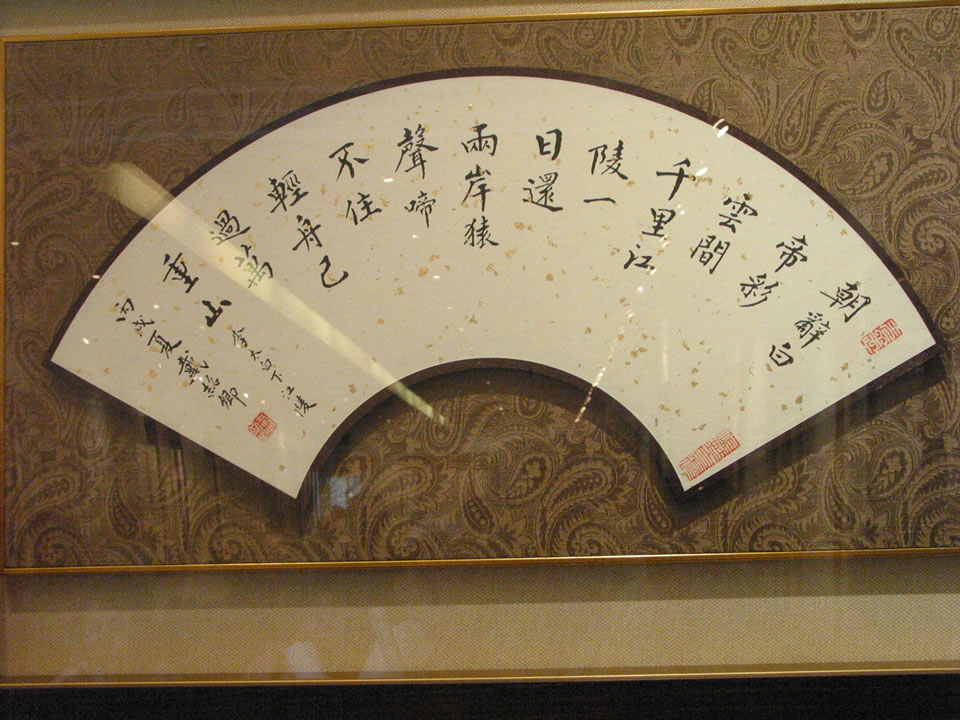 朝辭白
帝彩
雲間
千里江
陵一
日還
兩岸猿
聲啼
不住
輕舟已
過萬
重山
李太白下江陵
丙戌夏 戴卿